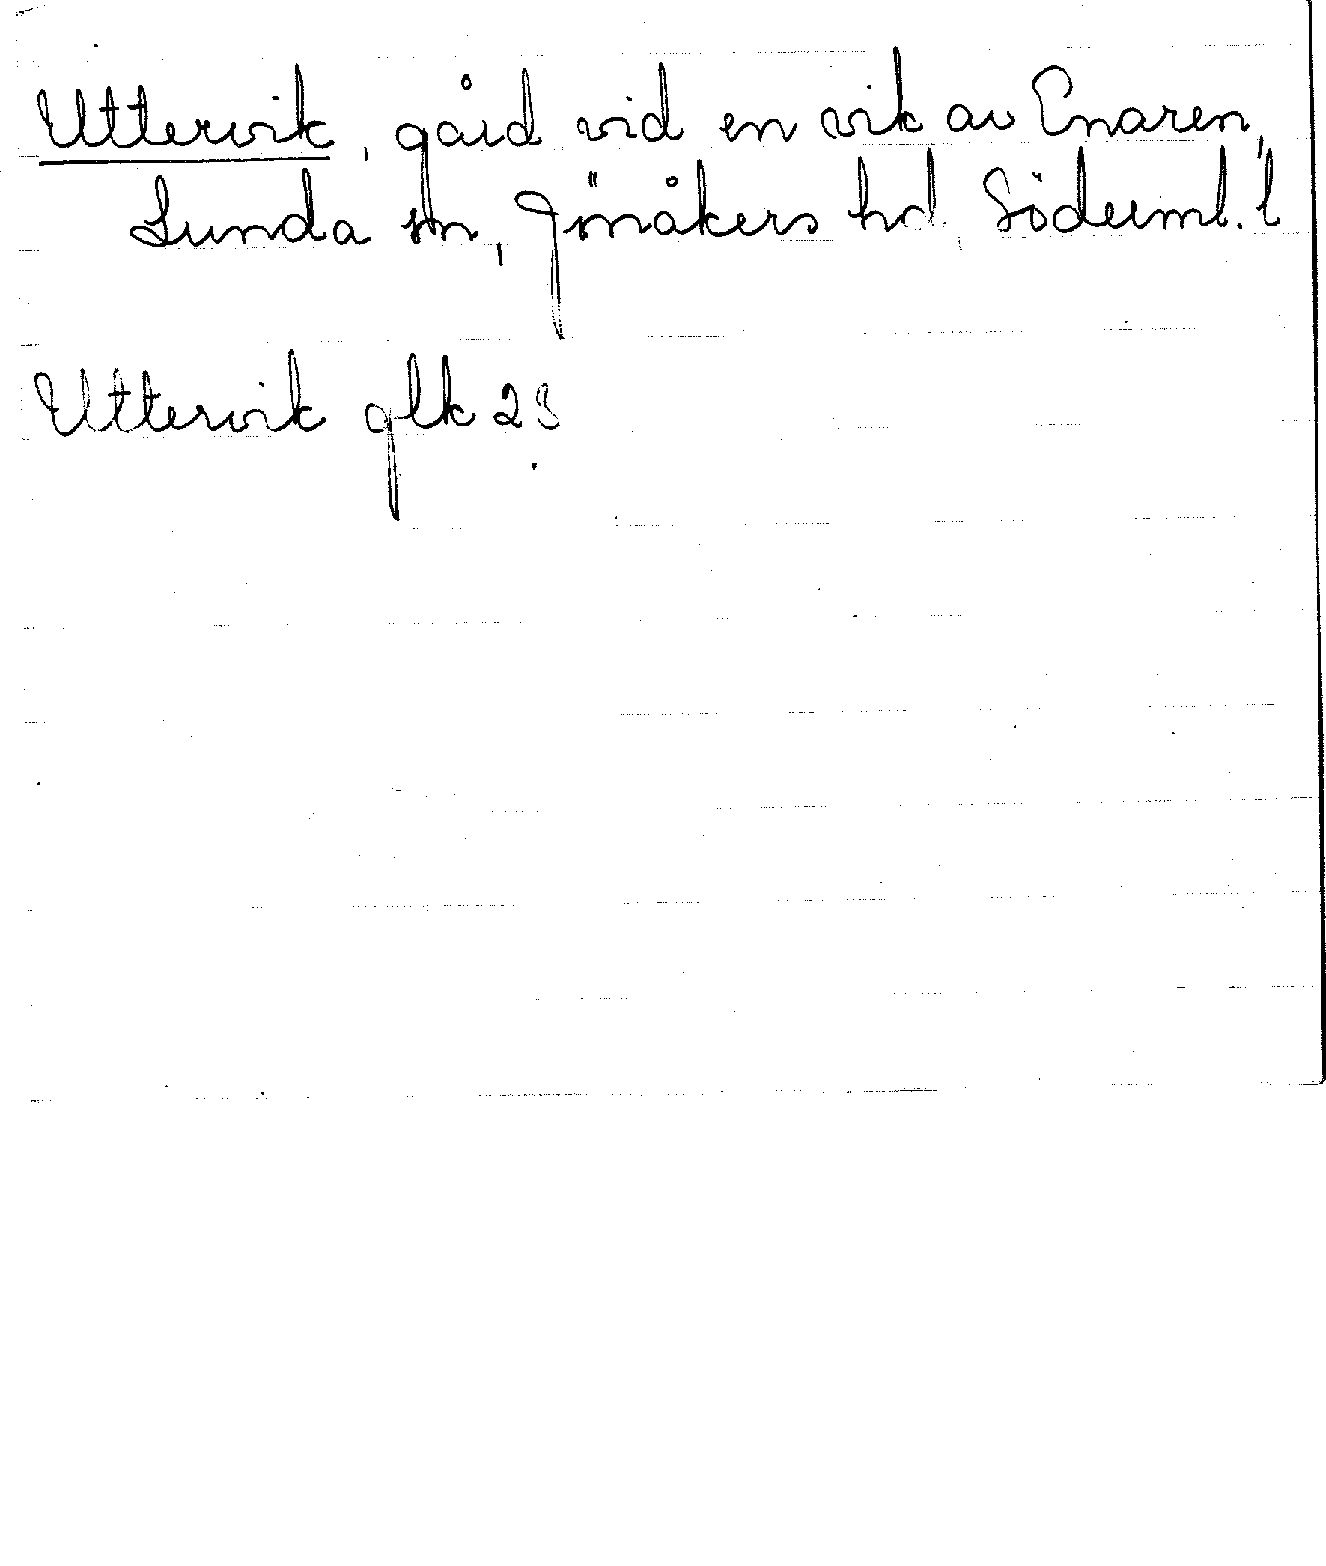 Uttervik, gård vid en vik av Enaren,
Lunda sn, Jönåkers hd, Söderml. l
Uttervik glk 23